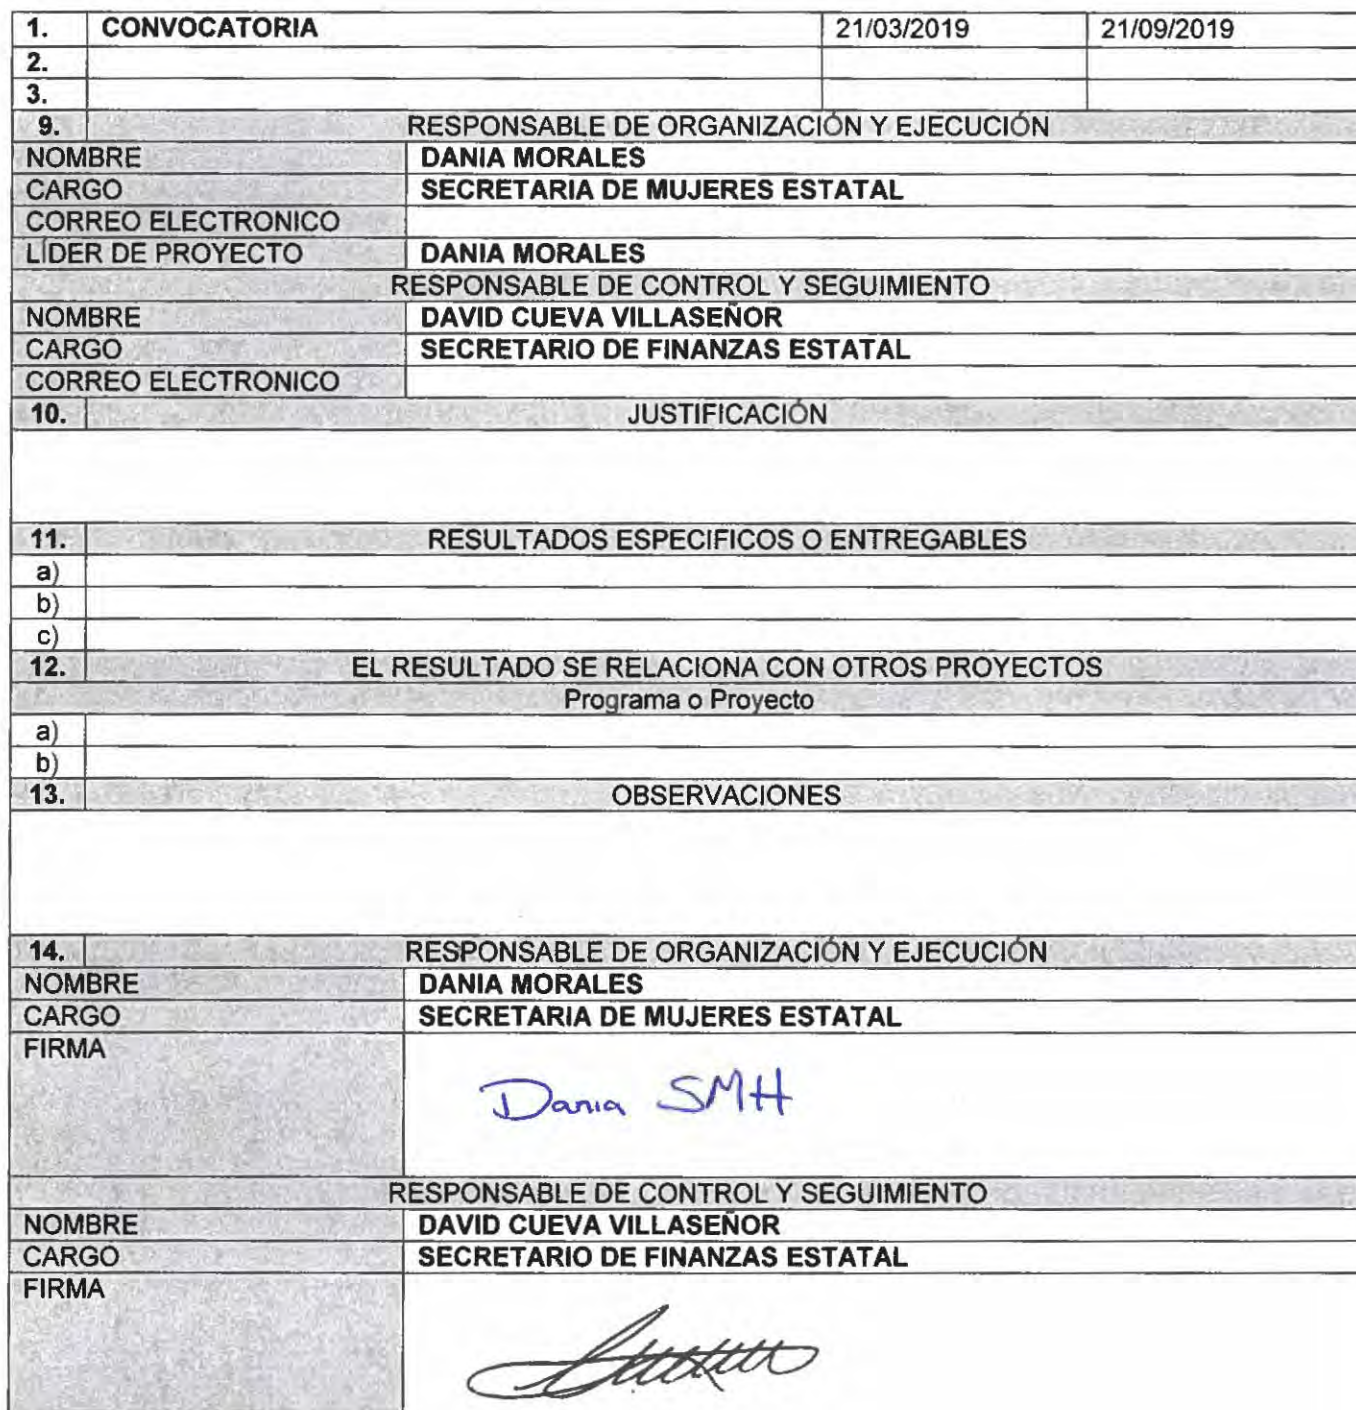 1. CONVOCATORIA 21/03/2019 21/09/2019
2.
3.
9. RESPONSABLE DE ORGANIZACIÓN Y EJECUCIÓN
NOMBRE DANIA MORALES
CARGO SECRETARIA DE MUJERES ESTATAL
CORREO ELECTRONICO
LÍDER DE PROYECTO DANIA MORALES
RESPONSABLE DE CONTROL Y SEGUIMIENTO
NOMBRE DAVID CUEVA VILLASEÑOR
CARGO SECRETARIO DE FINANZAS ESTATAL
CORREO ELECTRONICO
10. JUSTIFICACIÓN
11. RESULTADOS ESPECIFICOS O ENTREGABLES
a)
b)
c)
12. EL RESULTADO SE RELACIONA CON OTROS PROYECTOS
Programa o Proyecto
a)
b)
13. OBSERVACIONES
14. RESPONSABLE DE ORGANIZACIÓN Y EJECUCIÓN
NOMBRE DANIA MORALES
CARGO SECRETARIA DE MUJERES ESTATAL
FIRMA
Dania SMH
RESPONSABLE DE CONTROL Y SEGUIMIENTO
NOMBRE DAVID CUEVA VILLASEÑOR
CARGO SECRETARIO DE FINANZAS ESTATAL
FIRMA